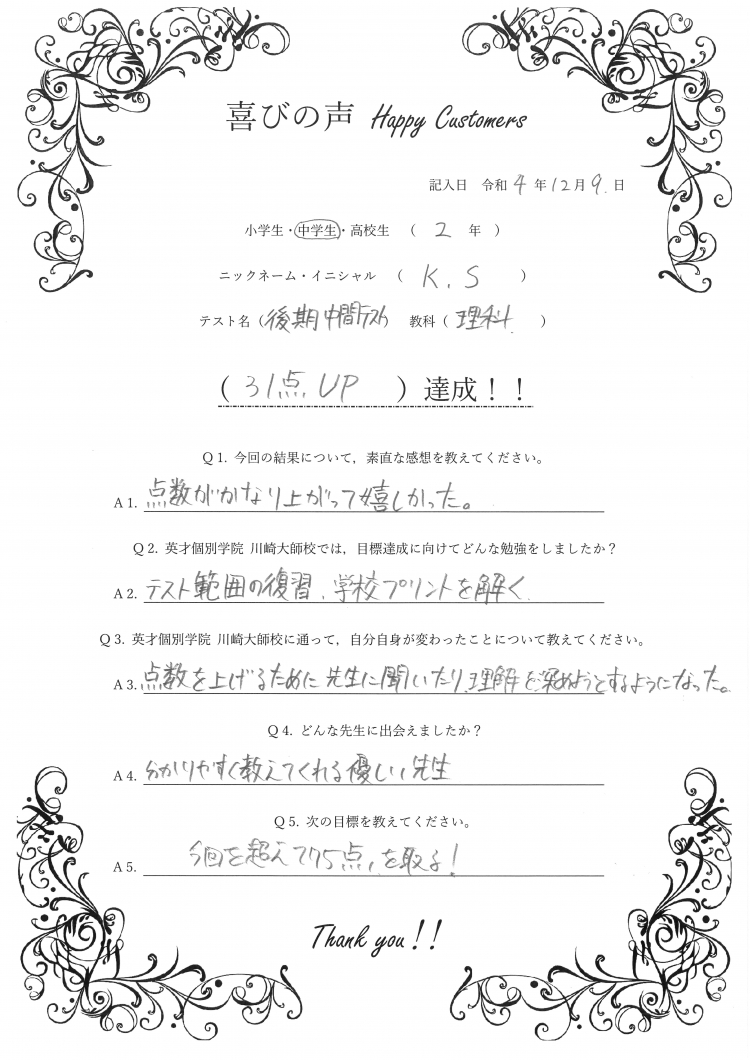 喜びの声 Happy Customers
記入日 令和 4 年 12 月 9 日
小学生・中学生・高校生 ( 2 年 )
ニックネーム・イニシャル ( K.S )
テスト名 (後期中間テスト) 教科 ( 理科 )
( 31点UP ) 達成！！
Q1. 今回の結果について，素直な感想を教えてください。
A1. 点数がかなり上がって嬉しかった。
Q2. 英才個別学院 川崎大師校では，目標達成に向けてどんな勉強をしましたか？
A2. テスト範囲の復習、学校プリントを解く
Q3. 英才個別学院 川崎大師校に通って，自分自身が変わったことについて教えてください。
A3. 点数を上げるために先生に聞いたり、理解を深めようとするようになった。
Q4. どんな先生に出会えましたか？
A4. 分かりやすく教えてくれる優しい先生
Q5. 次の目標を教えてください。
A5. 今回を超えて75点を取る！
Thank you！！